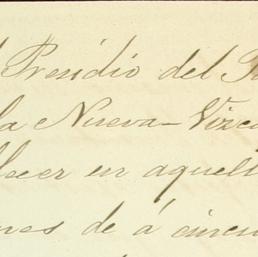 Presidio del
la Nueva-Vizca
blecer en aquell
nes de á cincu